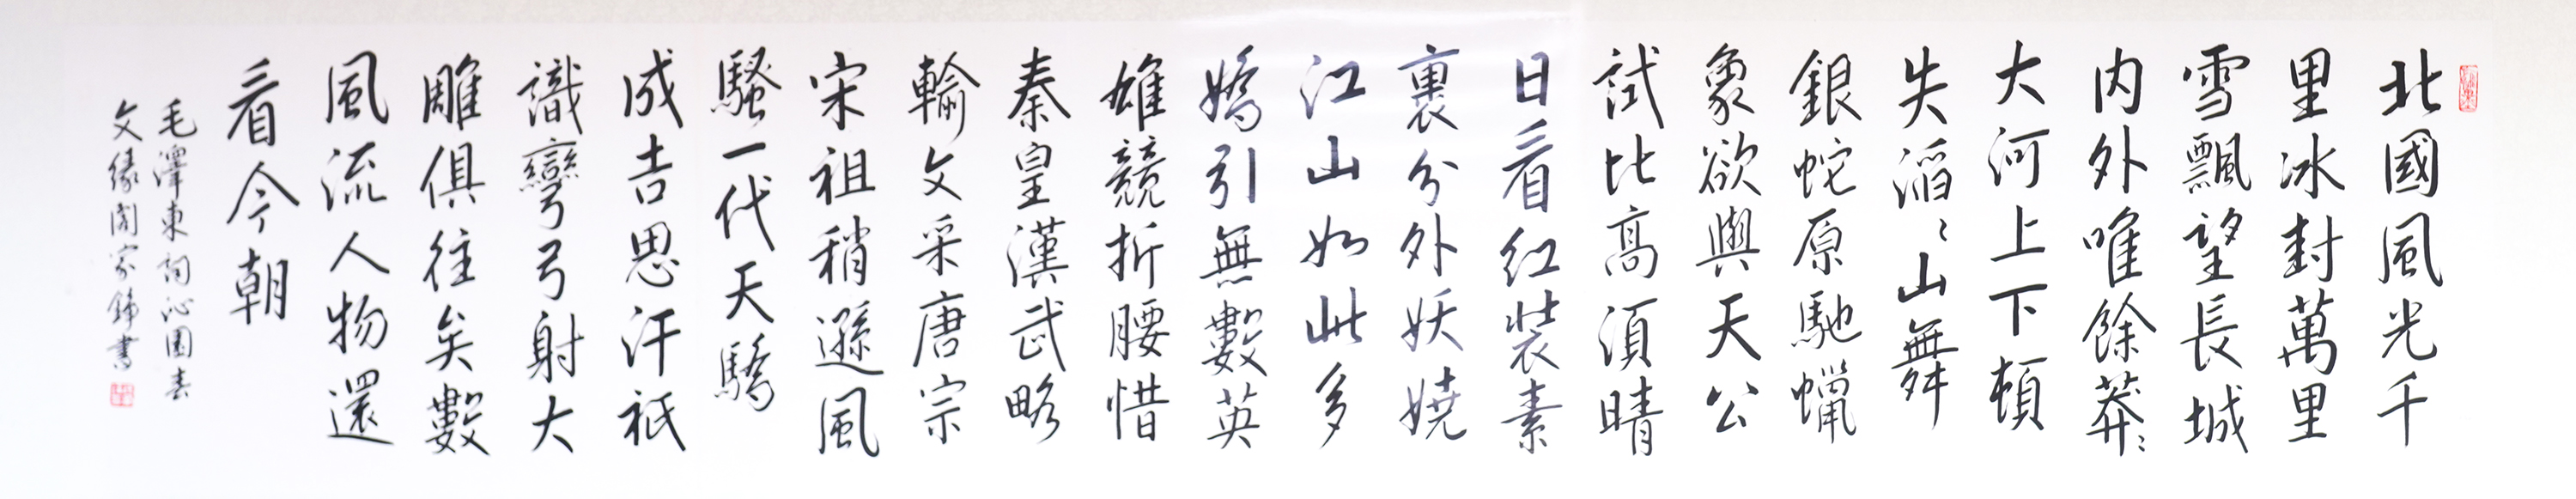 北國風光千
里冰封萬里
雪飄望長城
内外唯餘莽〻
大河上下頓
失滔〻山舞
銀蛇原馳蠟
象欲與天公
試比高須晴
日看红裝素
裹分外妖嬈
江山如此多
嬌引無數英
雄競折腰惜
秦皇漢武略
輸文采唐宗
宋祖稍遜風
騷一代天驕
成吉思汗祇
識彎弓射大
雕俱往矣數
風流人物還
看今朝
毛澤東詞沁園春
文緣閣家錦書